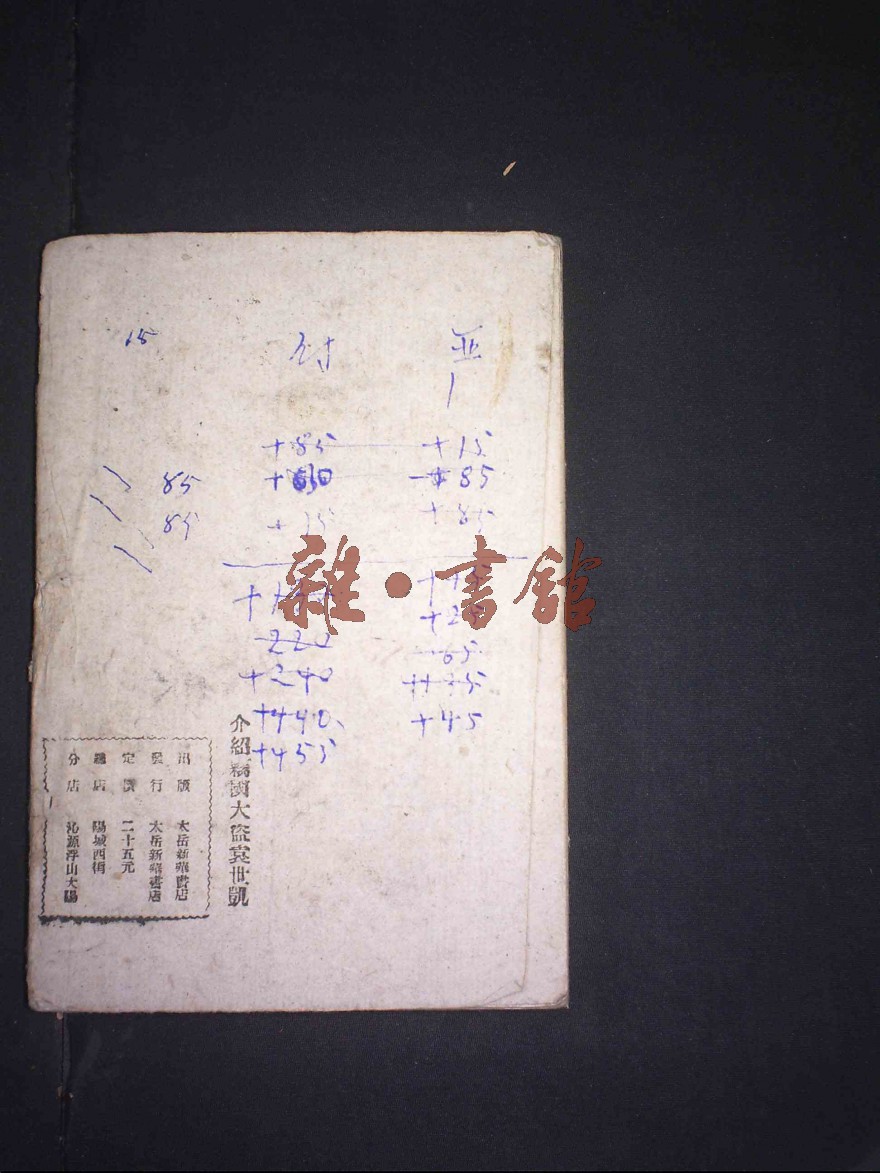 亚
+15
+85
+85
+45
討
+85
+15
220
+240
+440
+455
15
85
85
介紹竊國大盜袁世凱
出版 太岳新華書店
發行 太岳新華書店
定價 二十五元
總店 陽城西街
分店 沁源浮山大陽
雜·書館